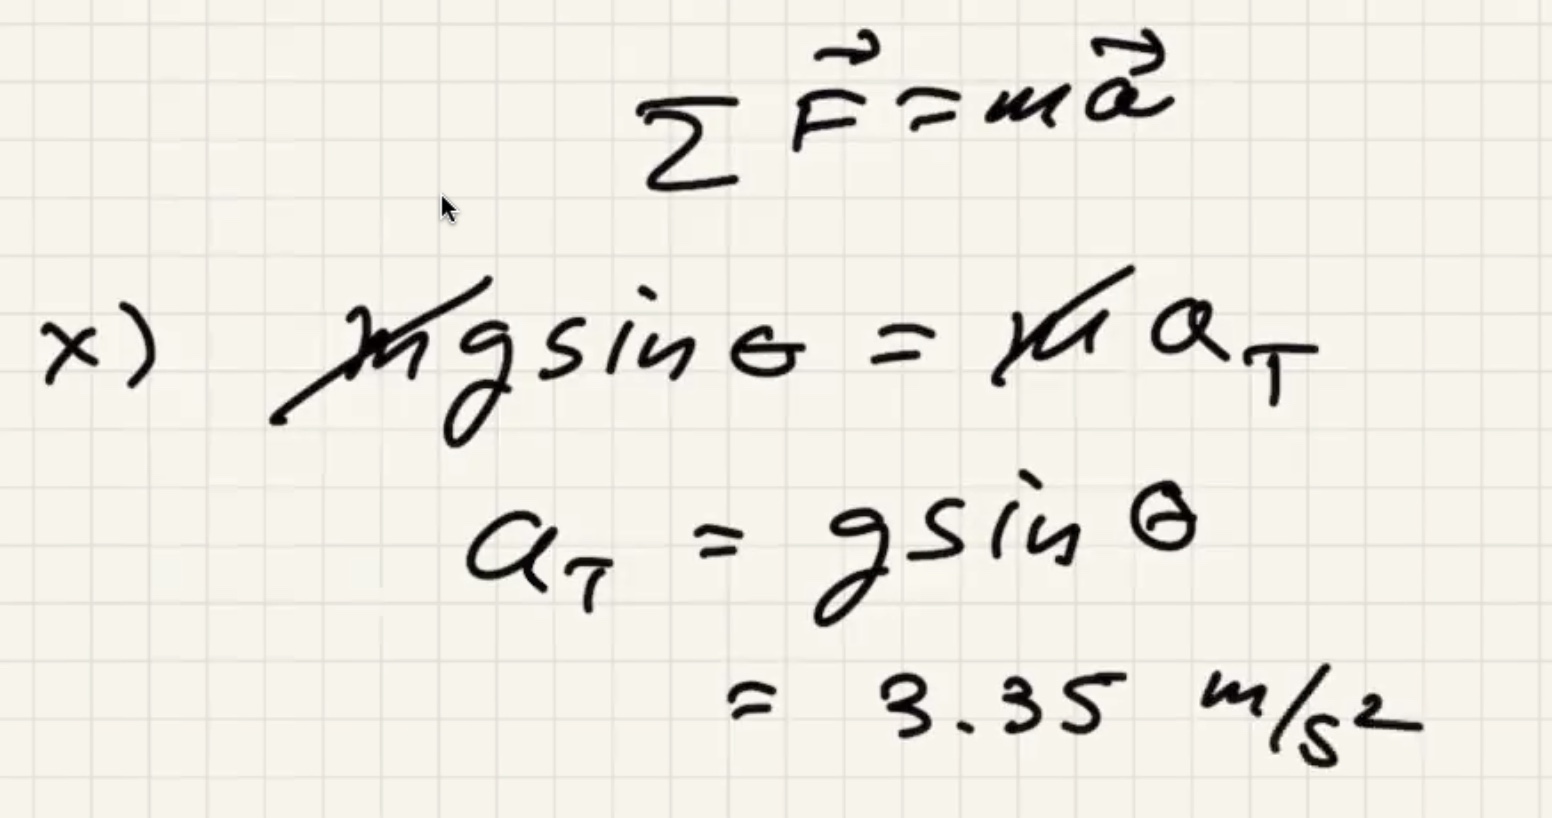 ∑ F⃗ = ma⃗
x) mg sin θ = m a_T
a_T = g sin θ
= 3.35 m/s²